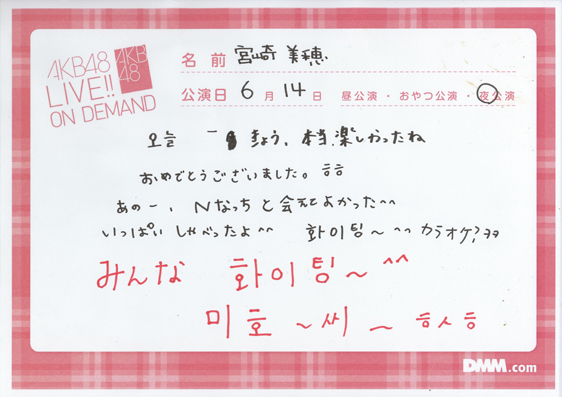 AKB48
LIVE!!
ON DEMAND
AKB
48
名前 宮崎 美穂
公演日 6 月 14 日 昼公演・おやつ公演・夜公演
오늘 ー きょう、本当、楽しかったね
おめでとうございました。ㅎㅎ
あのー、Nなっちと会えてよかった^^
いっぱいしゃべったよ^^ 화이팅~^^ カラオケ?ㅋㅋ
みんな 화이팅~^^
미호~씨~ ㅎㅅㅎ
DMM.com